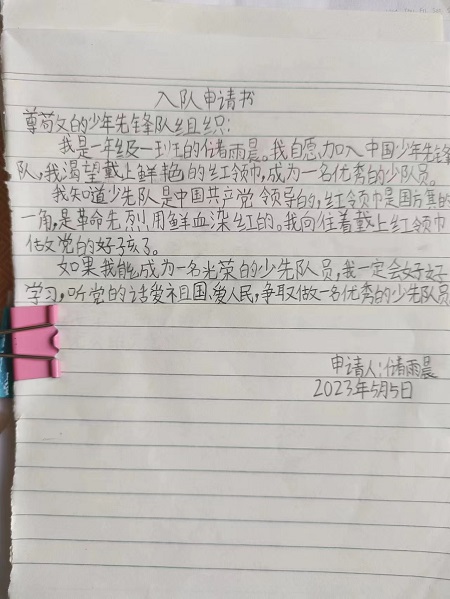 入队申请书
尊敬的少年先锋队组织:
我是一年级一班的储雨晨。我自愿加入中国少年先锋
队,我渴望戴上鲜艳的红领巾,成为一名优秀的少队员。
我知道少先队是中国共产党领导的,红领巾是国旗的
一角,是革命先烈用鲜血染红的。我向往着戴上红领巾
做党的好孩子。
如果我能成为一名光荣的少先队员,我一定会好好
学习,听党的话爱祖国、爱人民,争取做一名优秀的少先队员
申请人:储雨晨
2023年5月5日